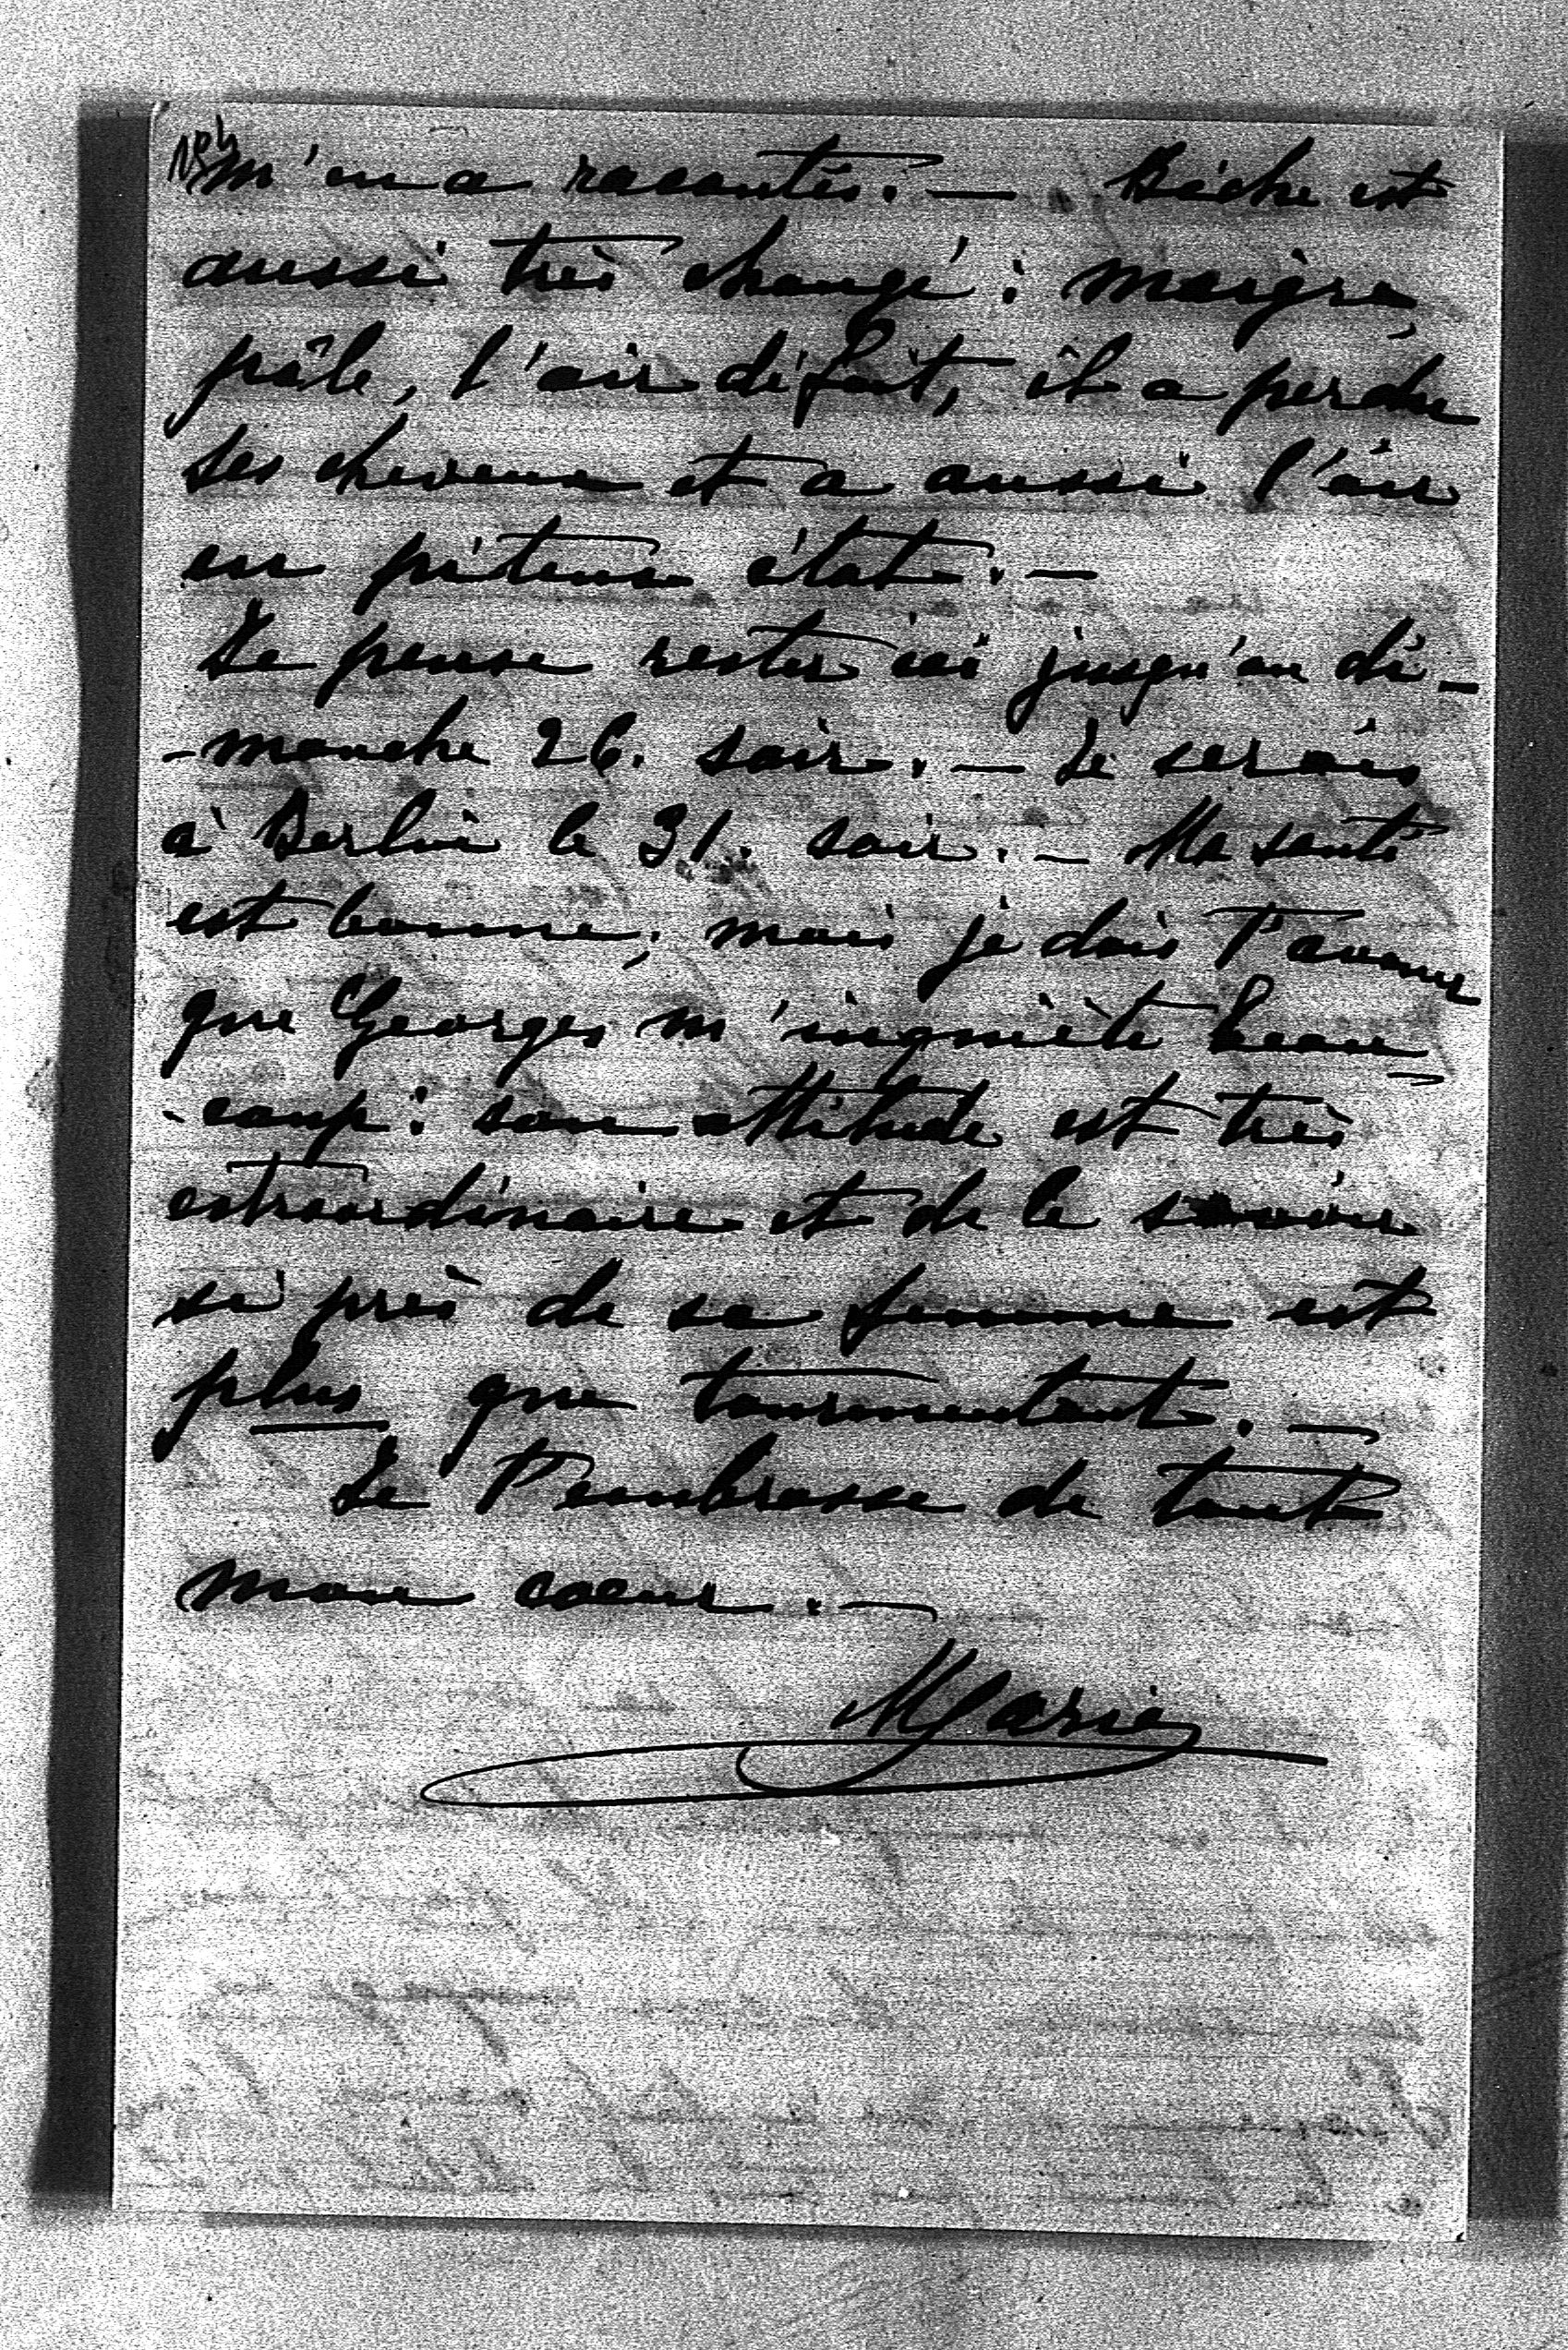 m'en a racontés. — Bèche est
aussi très changé: maigre,
pâle, l'air défait, il a perdu
ses cheveux et a aussi l'air
en piteux état. —
Je pense rester ici jusqu'au di-
-manche 26. soir. — Je serais
à Berlin le 31. soir. — Ma santé
est bonne, mais je dois t'avouer
que Georges m'inquiète beau=
-coup: son attitude est très
extraordinaire et de le savoir
si près de sa femme est
plus que tourmentant. —
Je t'embrasse de tout
mon cœur. —
Marie